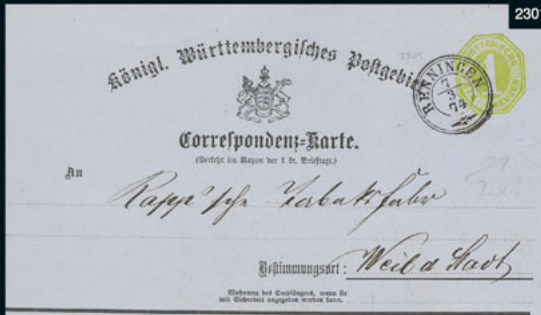 2301
Königl. Württembergisches Postgebiet
RENNINGEN
7
74
1
Correspondenz-Karte.
(Verkehr im Rayon der 1 kr. Brieftaxe.)
An
Rapp'sche Tabaksfabr
Bestimmungsort: Weil d Stadt
Wohnung des Empfängers, wenn sie
mit Sicherheit angegeben werden kann.